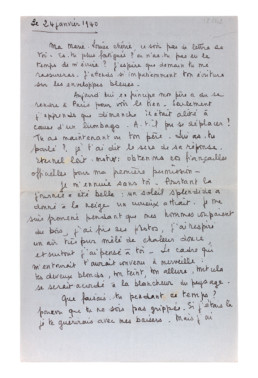 Le 24 janvier 1940
Ma Marie Louise chérie, ce soir pas de lettre de
toi. Es-tu plus fatiguée ? ou n'as-tu pas eu le
temps de m'écrire ? J'espère que demain tu me
rassureras. J'attends si impatiemment ton écriture
sur les enveloppes bleues.
Aujourd'hui en principe mon père a dû se
rendre à Paris pour voir le tien. Seulement
j'apprends que dimanche il était alité à
cause d'un lumbago. A-t-il pu se déplacer ?
Tu as maintenant vu ton père. Lui as-tu
parlé ? Je t'ai dit le sens de sa réponse.
obtenu nos fiançailles
officielles pour ma première permission.
Je m'ennuie sans toi. Pourtant la
journée a été belle : un soleil splendide a
donné à la neige un curieux attrait. Je me
suis promené pendant que mes hommes coupaient
du bois, j'ai pris des photos, j'ai respiré
un air très pur mêlé de chaleur douce
et surtout j'ai pensé à toi. Le cadre qui
m'entourait t'aurait convenu à merveille :
tes cheveux blonds, ton teint, ton allure, tout cela
se serait accordé à la blancheur du paysage.
Que faisais-tu pendant ce temps ?
pourvu que tu ne sois pas grippée. Si j'étais là
je te guérirais avec mes baisers. Mais j'ai